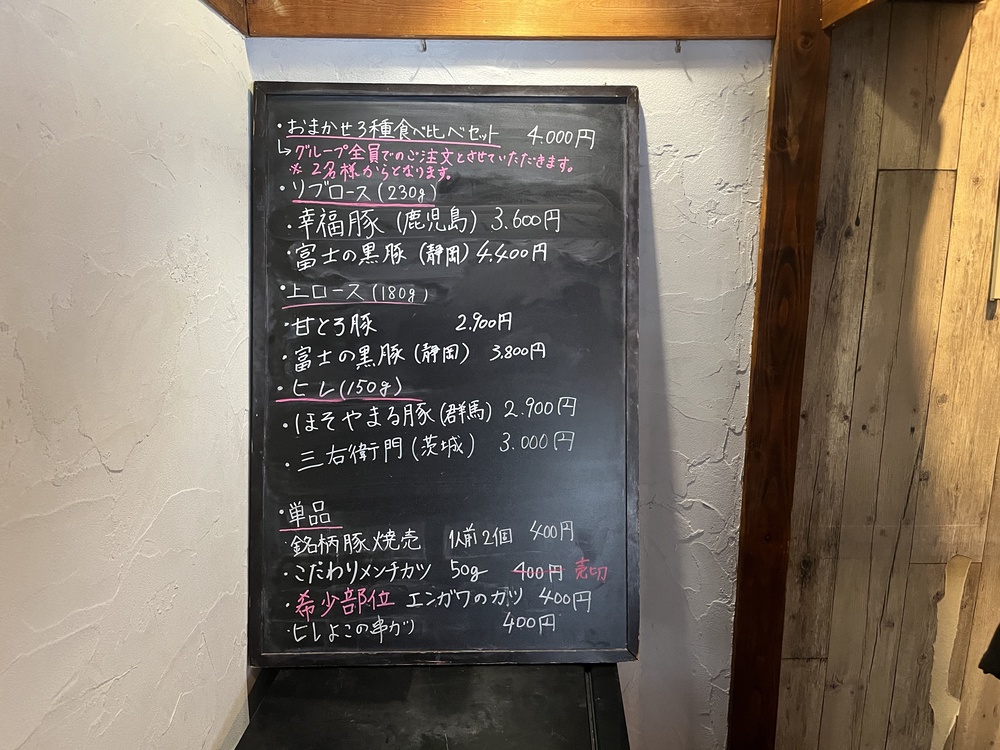 ・おまかせ3種食べ比べセット 4.000円
↳グループ全員でのご注文とさせていただきます。
※ 2名様からとなります。
・リブロース(230g)
・幸福豚(鹿児島) 3.600円
・富士の黒豚(静岡) 4.400円
・上ロース(180g)
・甘とろ豚 2.900円
・富士の黒豚(静岡) 3.800円
・ヒレ(150g)
・ほそやまる豚(群馬) 2.900円
・三右衛門(茨城) 3.000円
・単品
・銘柄豚焼売 1人前2個 400円
・こだわりメンチカツ 50g 400円 売切
・希少部位 エンガワのカツ 400円
・ヒレよこの串カツ 400円